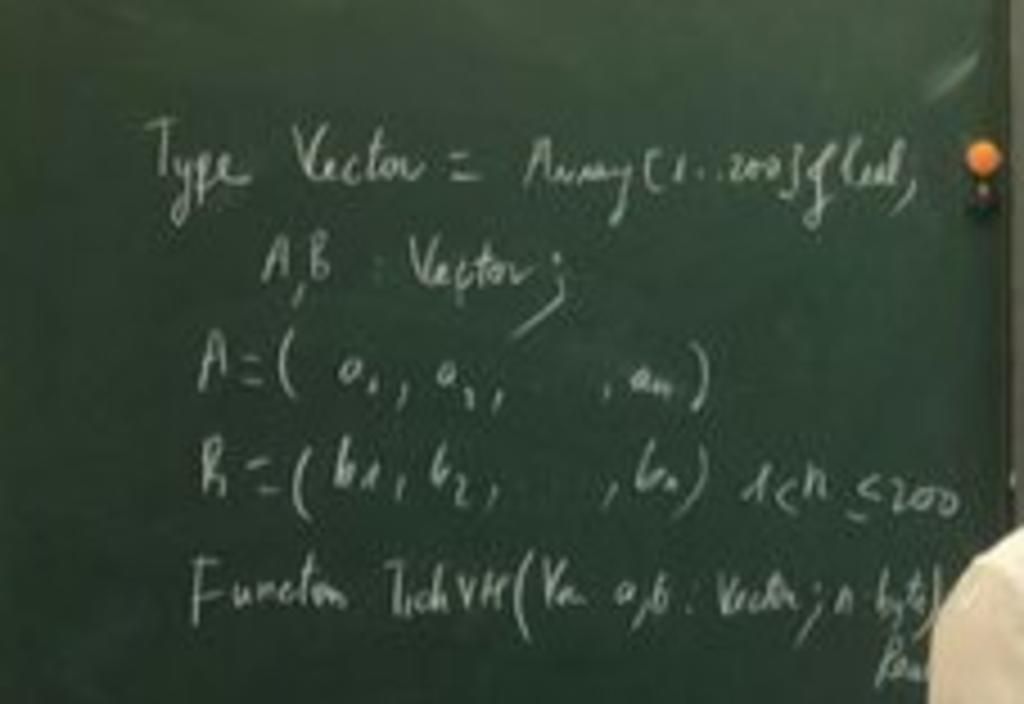 Type Vector = Array [1..200] of Real;
A,B : Vector;
A = ( a1, a2, , an )
B = ( b1, b2, , bn ) 1<n ≤200
Function TichVH (Var a,b : Vector; n: byte)